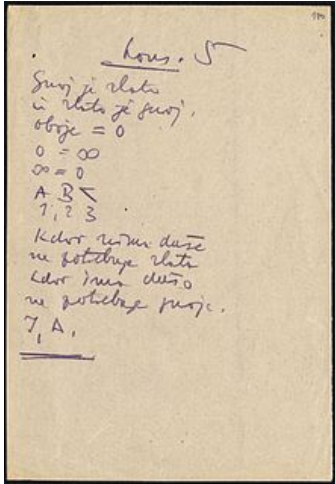 Kons. 5
Gnoj je zlato
in zlato je gnoj.
oboje = 0
0 = ∞
∞ = 0
A B <
1, 2 3
Kdor nima duše
ne potrebuje zlata
kdor ima dušo
ne potrebuje gnoja.
I, A,